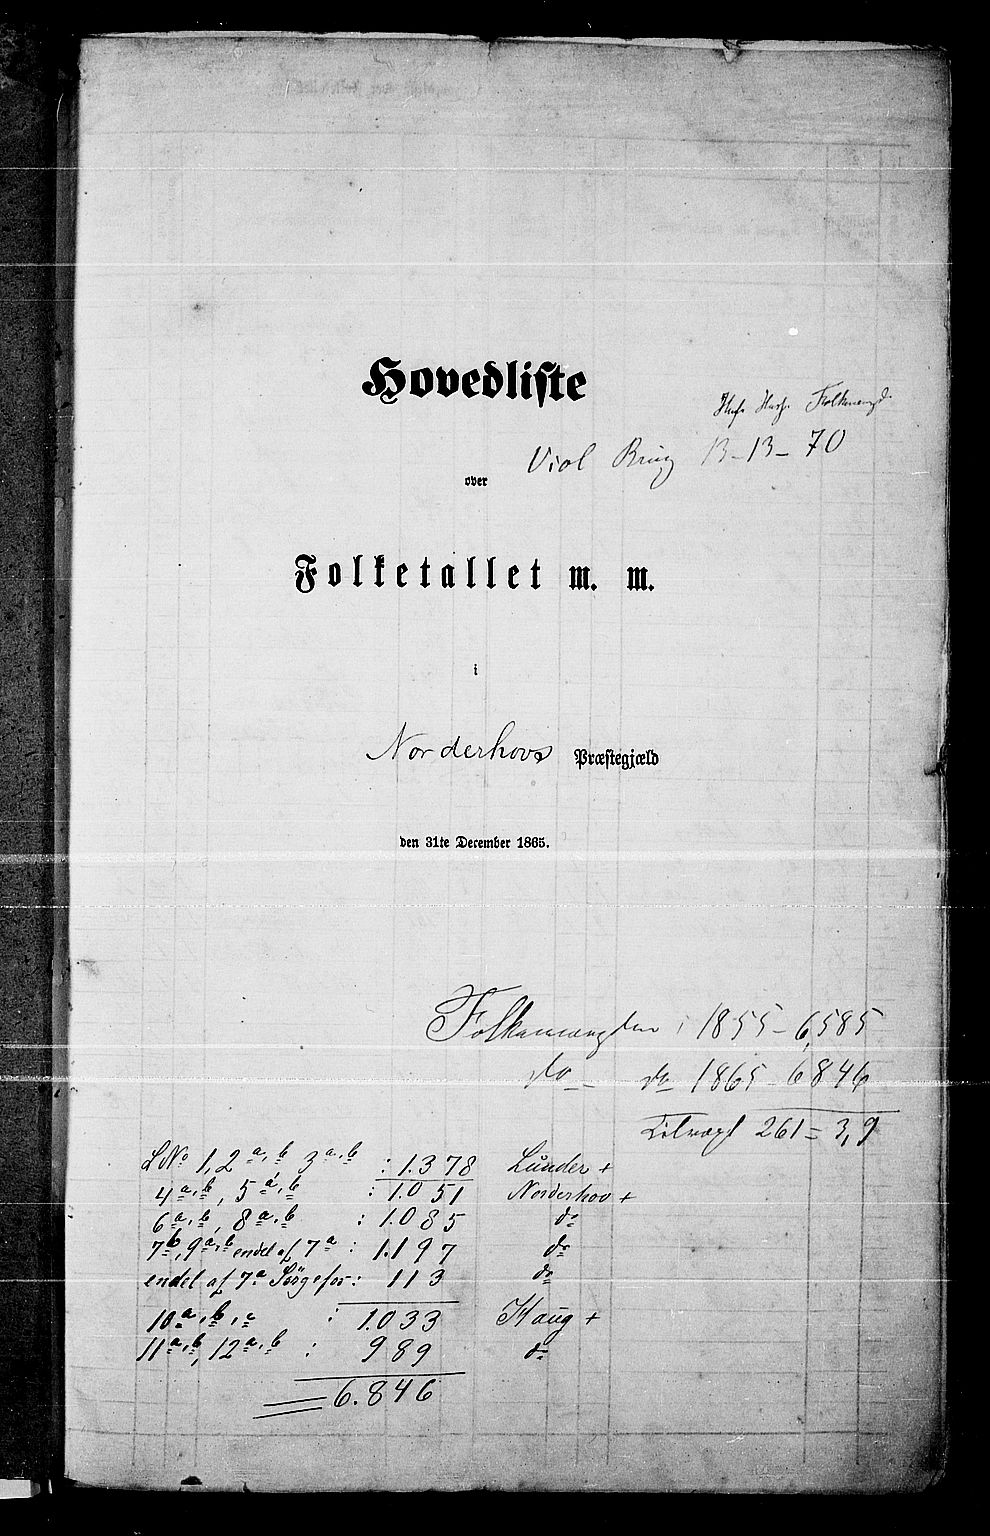 Hovedliste
Folkemængd.
Viol Brug 13-13-70
over
Folketallet m. m.
i
Norderhovs Præstegjæld
den 31te December 1865.
Folkemængden i 1855 - 6,585
do - do 1865 - 6846
Tilvæxt 261 = 3,9
LNo 1, 2 a, b 3 a, b : 1.378 Lunder +
4 a, b, 5 a, b : 1.051 Norderhov +
6 a, b, 8 a, b : 1.085 do
7 b, 9 a, b endel af 7 a : 1.197 do
endel af 7 a : 113 do
10 a, b, c : 1.033 Haug +
11 a, b, 12 a, b : 989 do
6.846